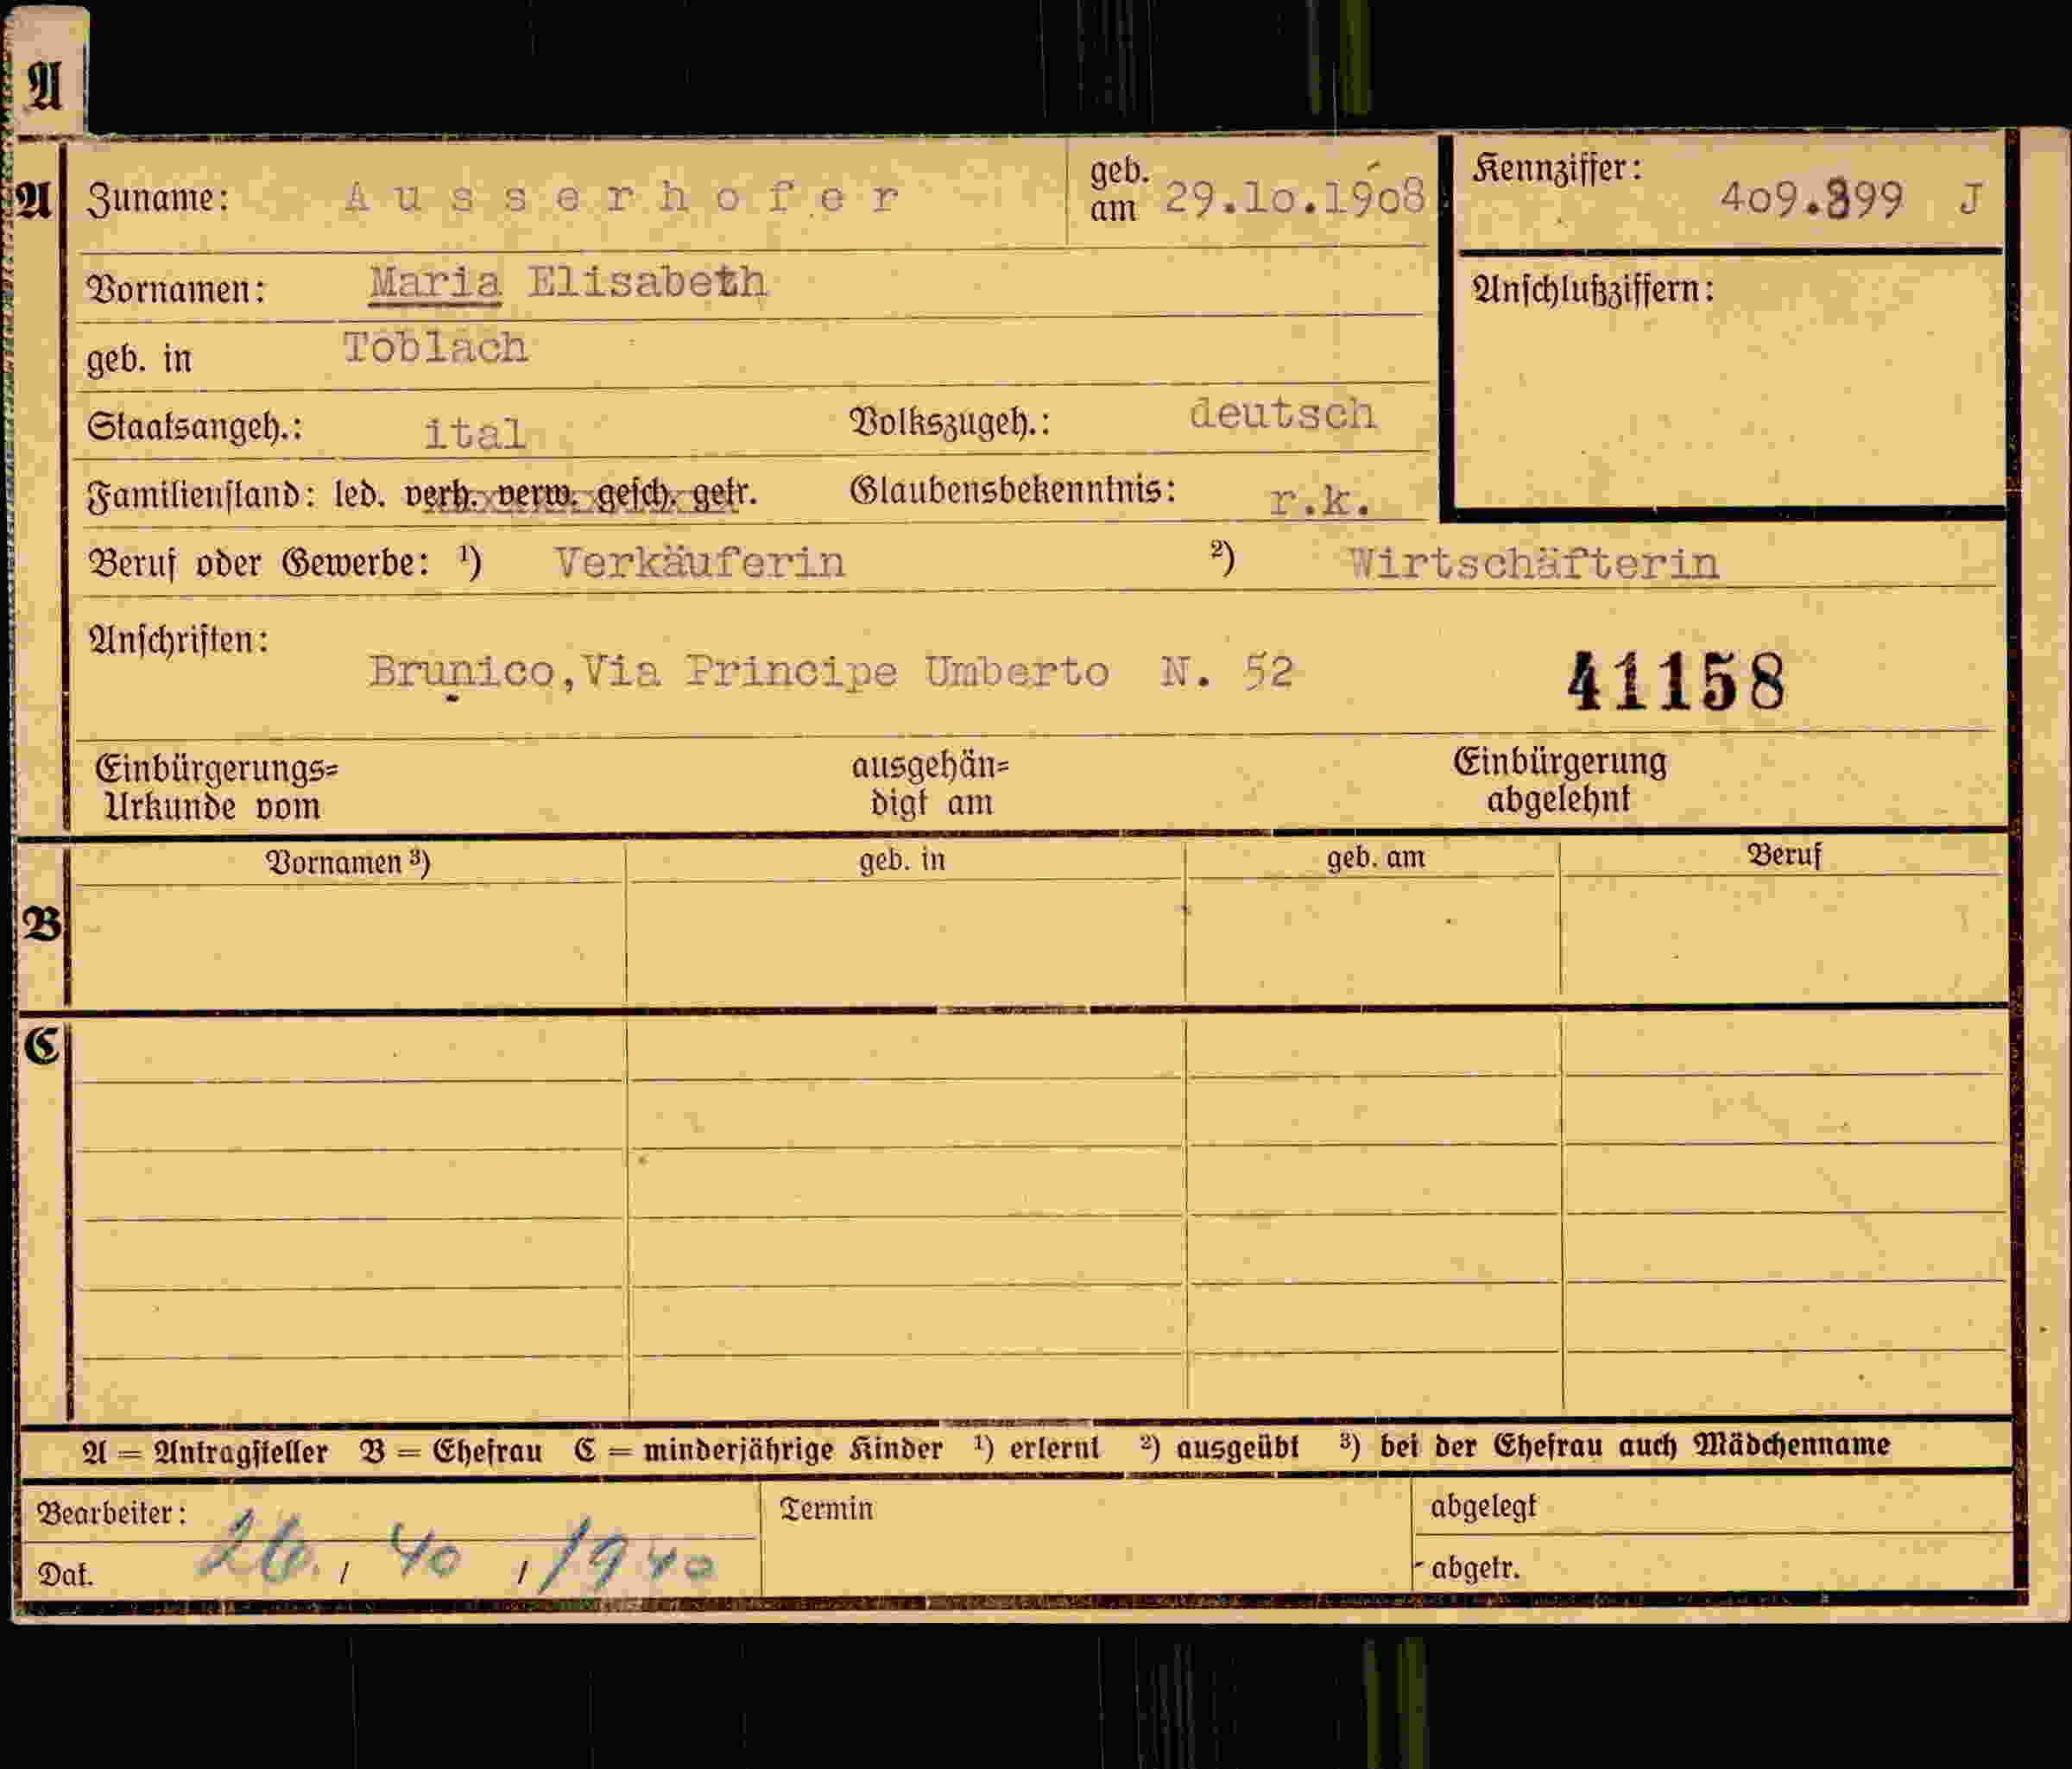 A
A Zuname: Ausserhofer geb. am 29.10.1908 Kennziffer: 409.899 J
Vornamen: Maria Elisabeth Anschlußziffern:
geb. in Toblach
Staatsangeh.: ital Volkszugeh.: deutsch
Familienstand: led. verh. verw. gesch. getr. Glaubensbekenntnis: r.k.
Beruf oder Gewerbe: ¹) Verkäuferin ²) Wirtschäfterin
Anschriften:
Brunico,Via Principe Umberto N. 52 41158
Einbürgerungs= ausgehän= Einbürgerung
Urkunde vom digt am abgelehnt
Vornamen ³) geb. in geb. am Beruf
B
C
A = Antragsteller B = Ehefrau C = minderjährige Kinder ¹) erlernt ²) ausgeübt ³) bei der Ehefrau auch Mädchenname
Bearbeiter: Termin abgelegt
Dat. 26. / 40 / 1940 abgetr.